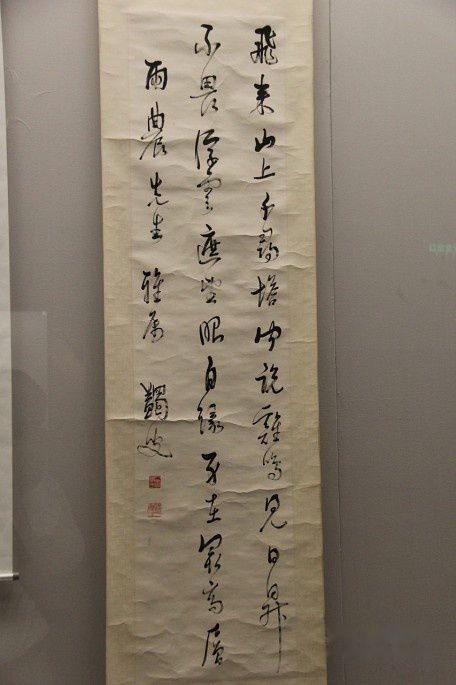 飛来山上千尋塔聞說雞鳴見日昇
不畏浮雲遮望眼自緣身在最高層
雨農先生 雅屬 蠲叟